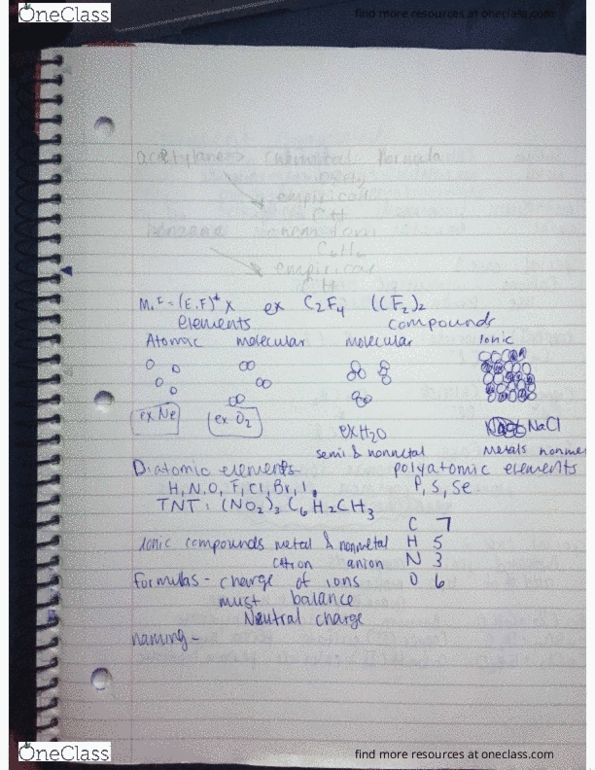 OneClass
find more resources at oneclass.com
acetylene → chemical formula
empirical
CH
benzene chemical
C6H6
empirical
CH
M.F = (E.F)* X ex C2F4 (CF2)2
elements compounds
Atomic molecular molecular Ionic
ex Ne ex O2 ex H2O NaCl
semi & nonmetal Metals nonme
Diatomic elements- polyatomic elements
H, N, O, F, Cl, Br, I, P, S, Se
TNT: (NO2)3 C6H2CH3
C 7
Ionic compounds metal & nonmetal H 5
cation anion N 3
formulas - charge of ions O 6
must balance
Neutral charge
naming -
OneClass
find more resources at oneclass.com